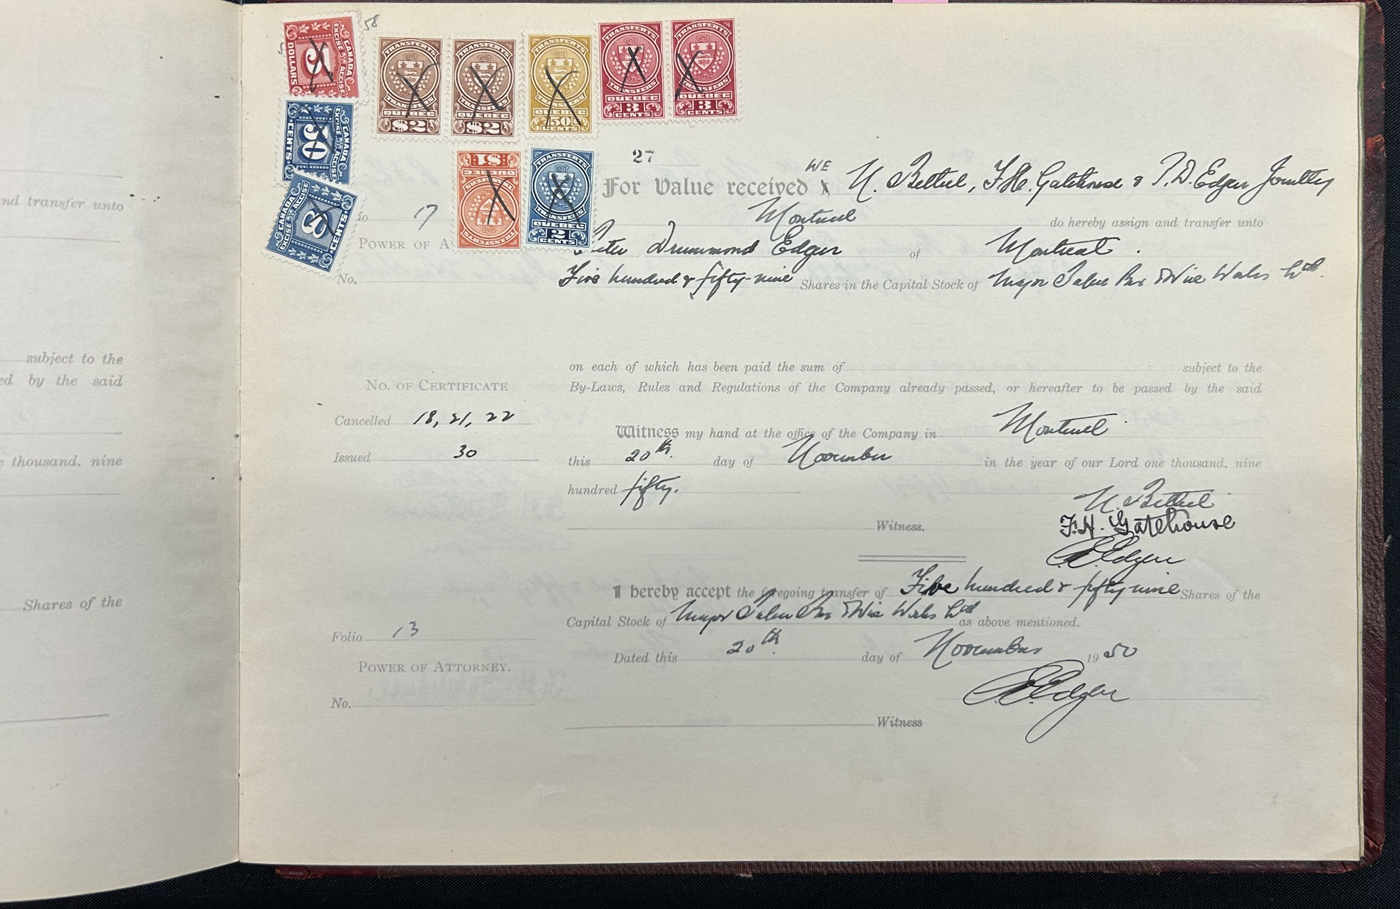 58
CANADA EXCISE ACCISE
DOLLARS
CANADA EXCISE ACCISE
50
CENTS
CANADA
CENTS
TRANSFERTS TRANSFERS QUEBEC $2
TRANSFERTS TRANSFERS QUEBEC $2
TRANSFERTS TRANSFERS QUEBEC 50 CENTS
TRANSFERTS TRANSFERS QUEBEC 3 CENTS
TRANSFERTS TRANSFERS QUEBEC 3 CENTS
TRANSFERTS TRANSFERS QUEBEC $1
TRANSFERTS TRANSFERS QUEBEC 2 CENTS
nd transfer unto
subject to the
ed by the said
e thousand. nine
Shares of the
27
For Value received WE N. Bethel, F.H. Gatehouse & P.D. Edger Jointly
lio 17
Montreal do hereby assign and transfer unto
POWER OF A
Peter Drummond Edger of Montreal.
No.
Five hundred & fifty-nine Shares in the Capital Stock of Major Ltd.
on each of which has been paid the sum of subject to the
NO. OF CERTIFICATE
By-Laws, Rules and Regulations of the Company already passed, or hereafter to be passed by the said
Cancelled 18, 21, 22
Witness my hand at the office of the Company in Montreal
Issued 30
this 20th. day of November in the year of our Lord one thousand. nine
hundred fifty.
N. Bethel
Witness.
F.H. Gatehouse
Edger
I hereby accept the foregoing transfer of Five hundred & fifty-nine Shares of the
Capital Stock of Major Ltd as above mentioned.
Folio 13
Dated this 20th. day of November 1950
POWER OF ATTORNEY.
Edger
No.
Witness